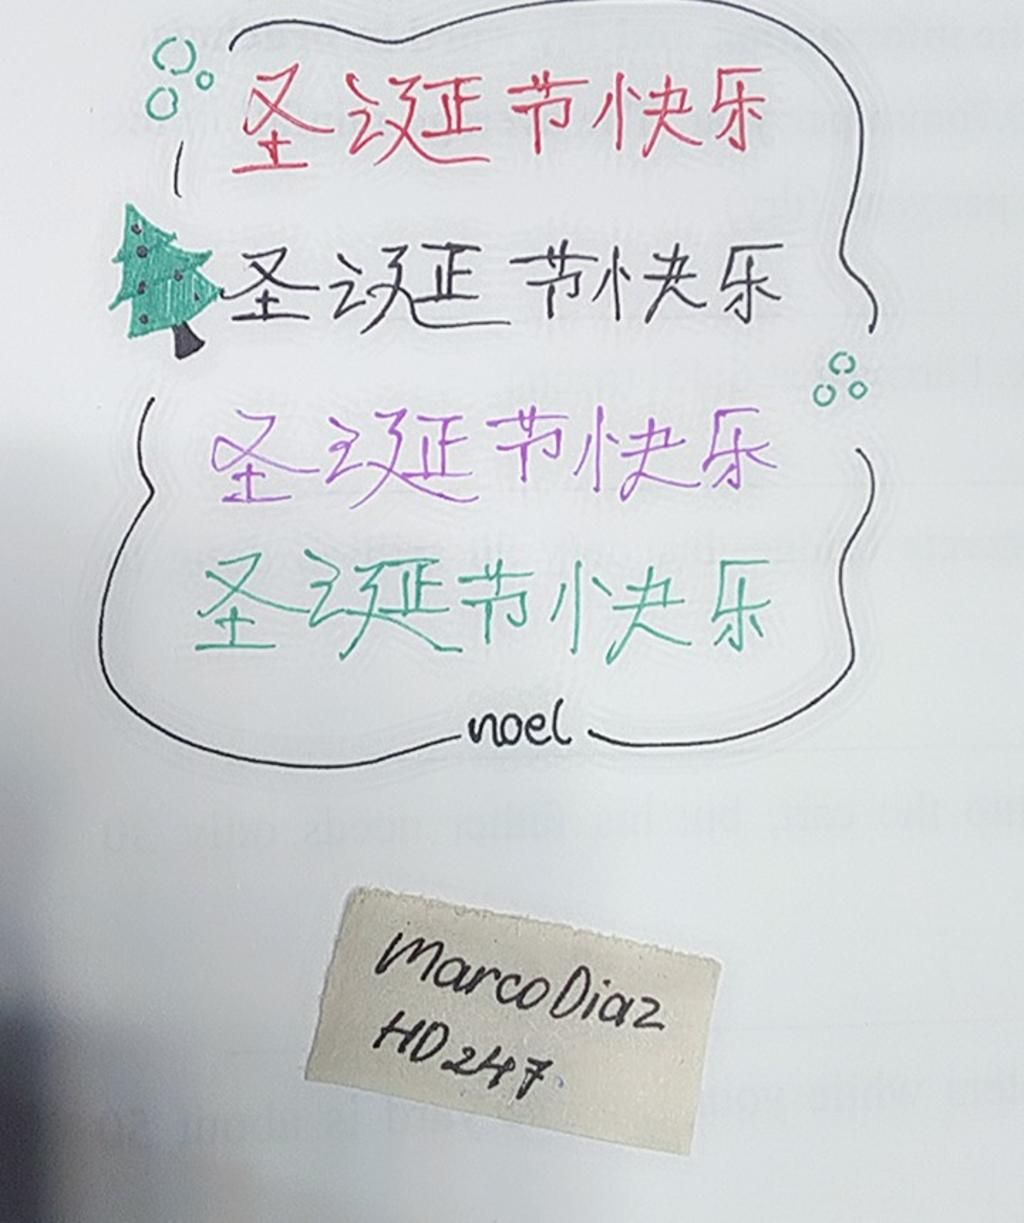 圣诞节快乐
圣诞节快乐
圣诞节快乐
圣诞节快乐
noel
Marco Diaz
HD247